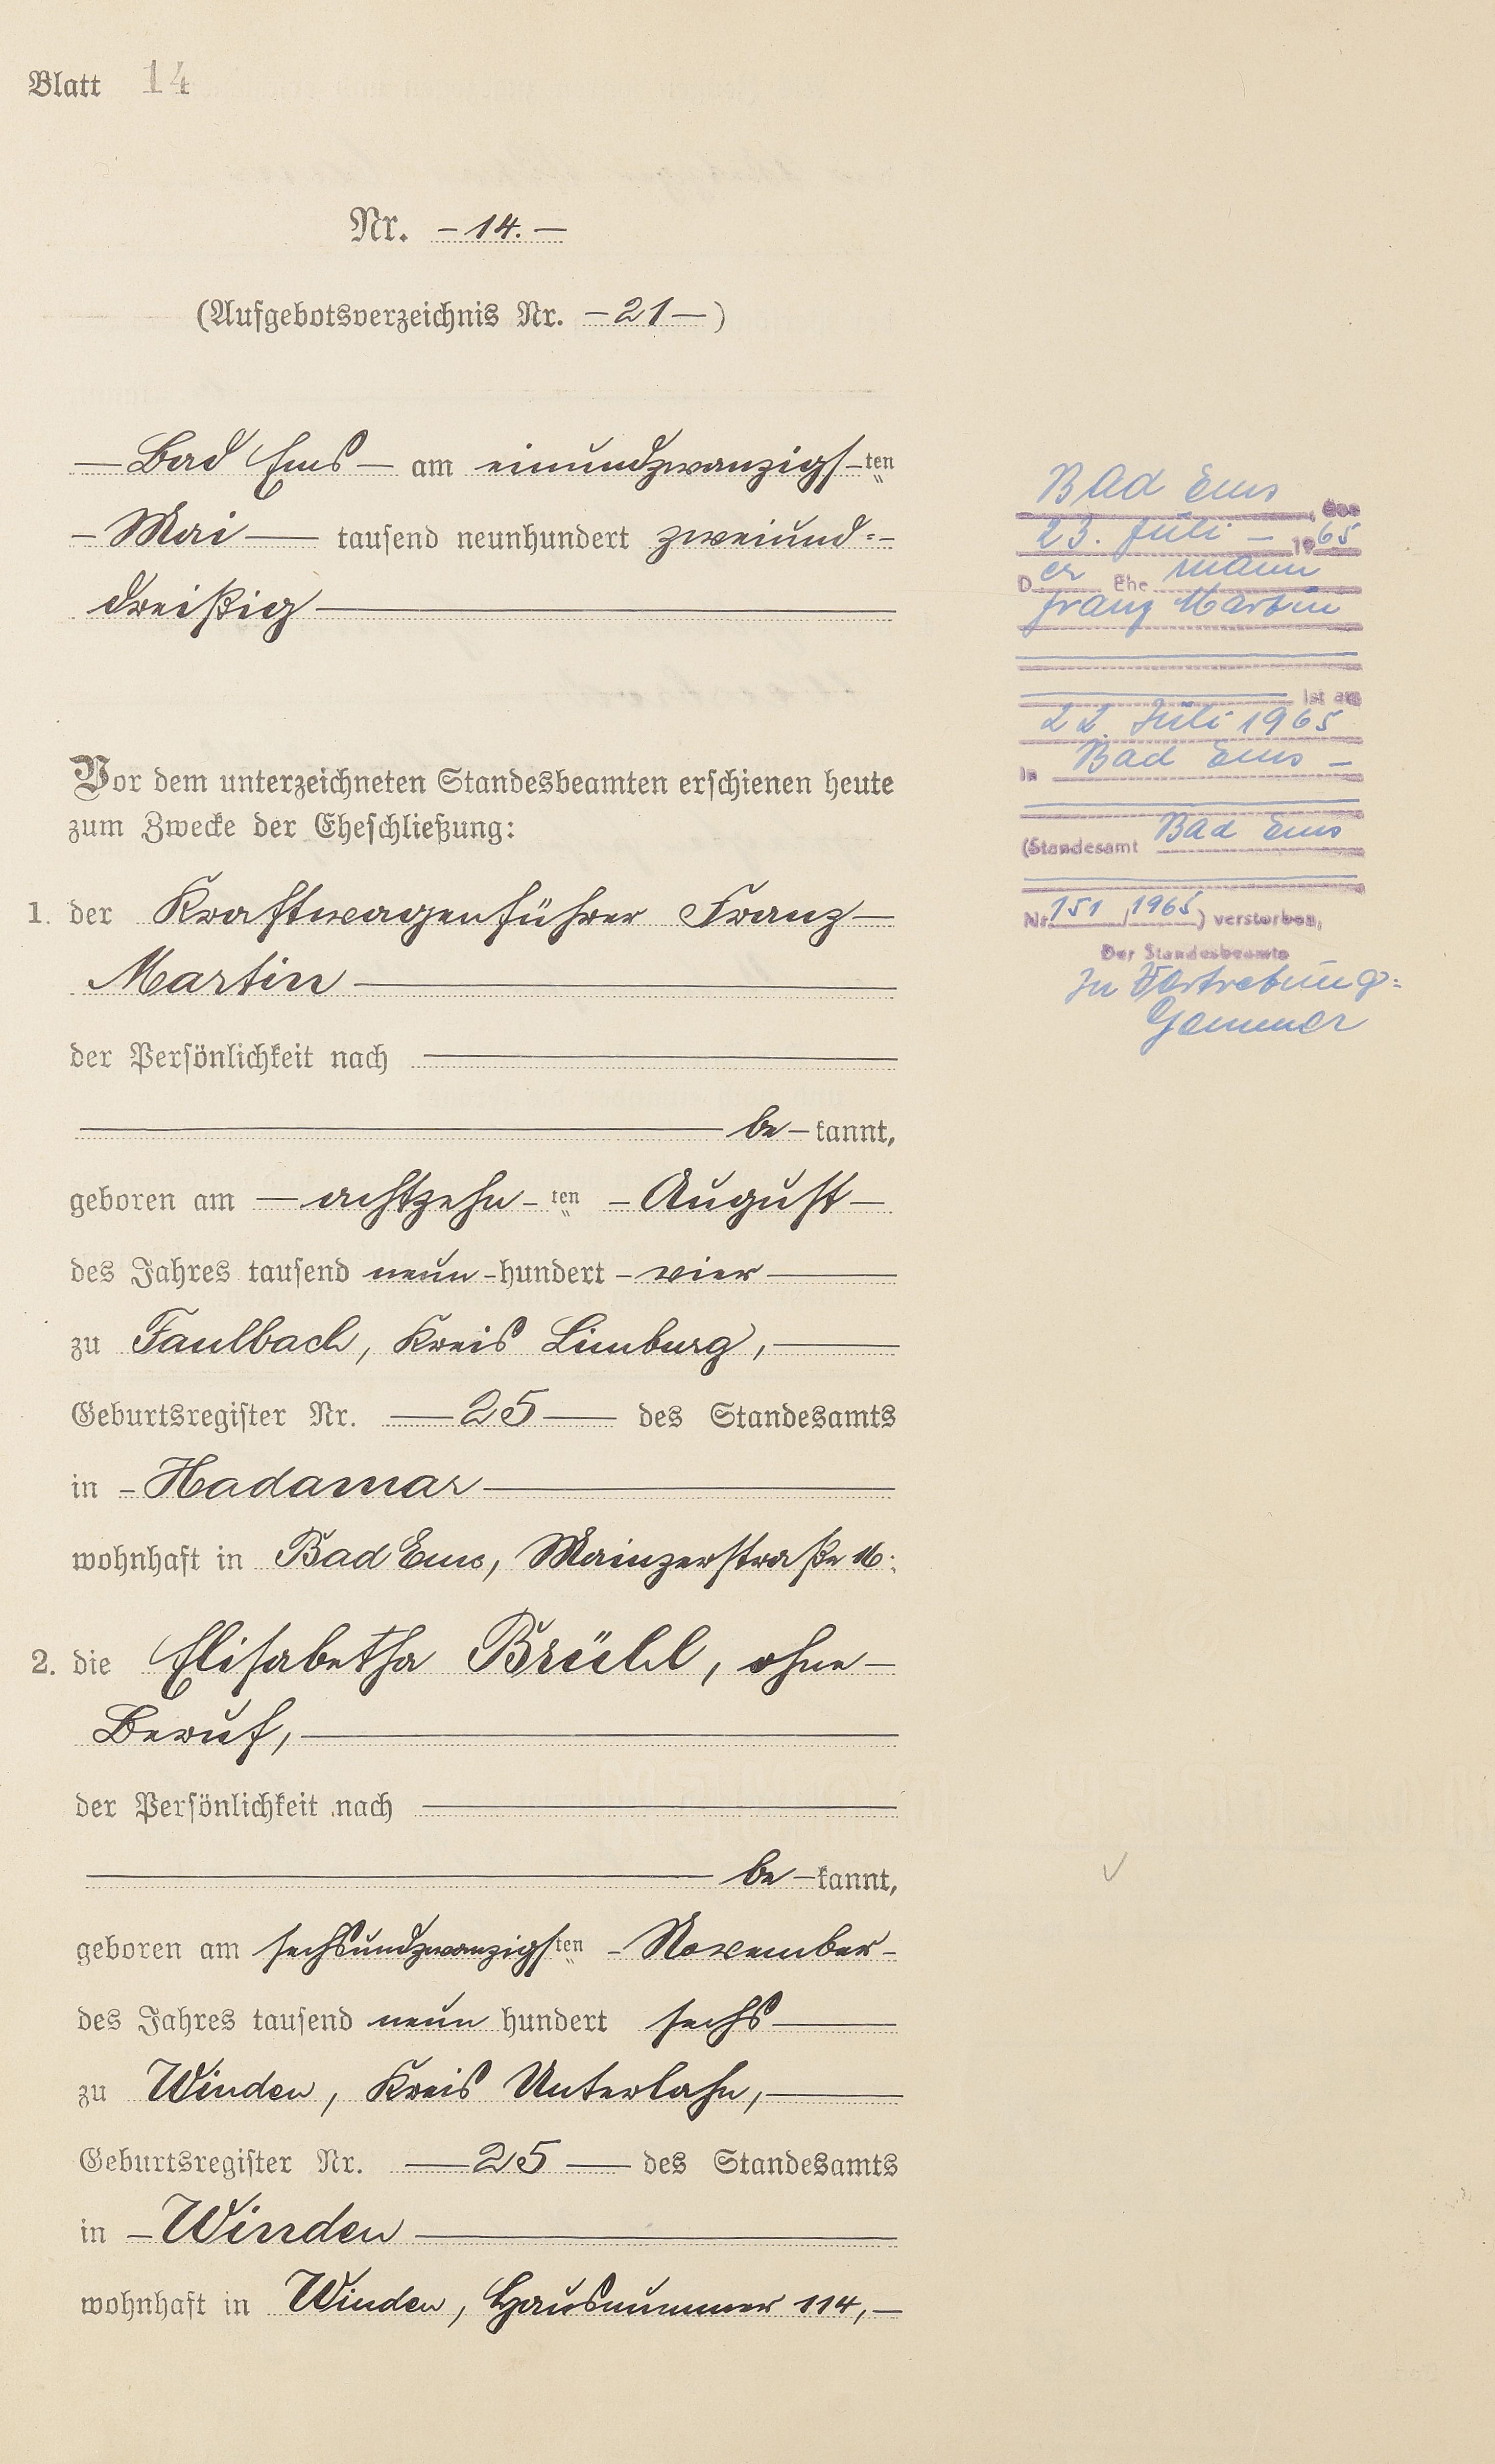 Blatt 14
Nr. – 14. –
(Aufgebotsverzeichnis Nr. – 21 – )
— Bad Ems — am einundzwanzigs – ten
– Mai — tausend neunhundert zweiund = –
dreißig —
Vor dem unterzeichneten Standesbeamten erschienen heute
zum Zwecke der Eheschließung:
1. der Kraftwagenführer Franz —
Martin —
der Persönlichkeit nach —
— be – kannt,
geboren am — achtzehn – ten – August –
des Jahres tausend neun – hundert – vier —
zu Faulbach, Kreis Limburg, —
Geburtsregister Nr. — 25 — des Standesamts
in – Hadamar —
wohnhaft in Bad Ems, Mainzerstraße 16.;
2. die Elisabetha Brühl, ohne –
Beruf, —
der Persönlichkeit nach —
— be – kannt,
geboren am sechsundzwanzigs ten – November –
des Jahres tausend neun hundert sechs —
zu Winden, Kreis Unterlahn, —
Geburtsregister Nr. — 25 — des Standesamts
in – Winden —
wohnhaft in Winden, Hausnummer 114, –
Bad Ems, den
23. Juli – 1965
Der Ehe mann
Franz Martin
ist am
22. Juli 1965
in Bad Ems –
(Standesamt Bad Ems
Nr. 151 / 1965 ) verstorben,
Der Standesbeamte
In Vertretung: